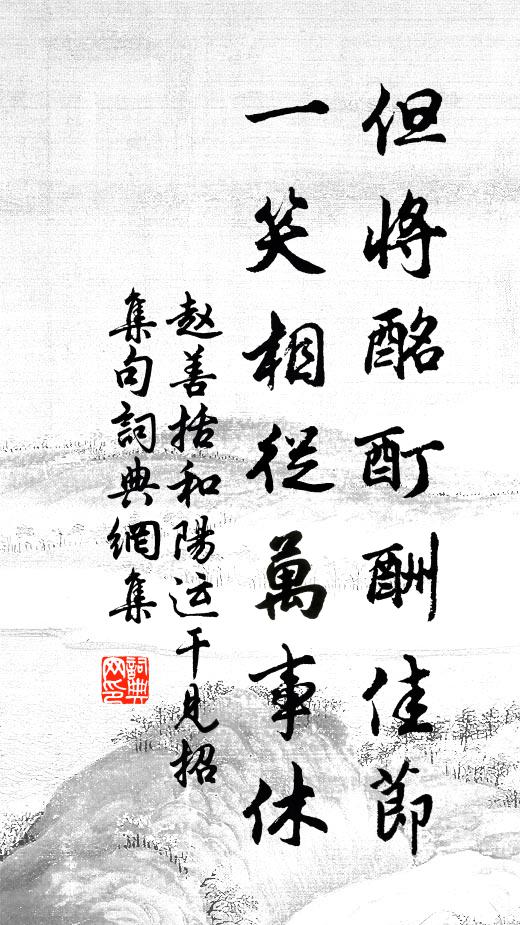 但將酩酊酬佳節
一笑相從萬事休
赵善括和陽运干見招
集句詞典網集
詞典網印